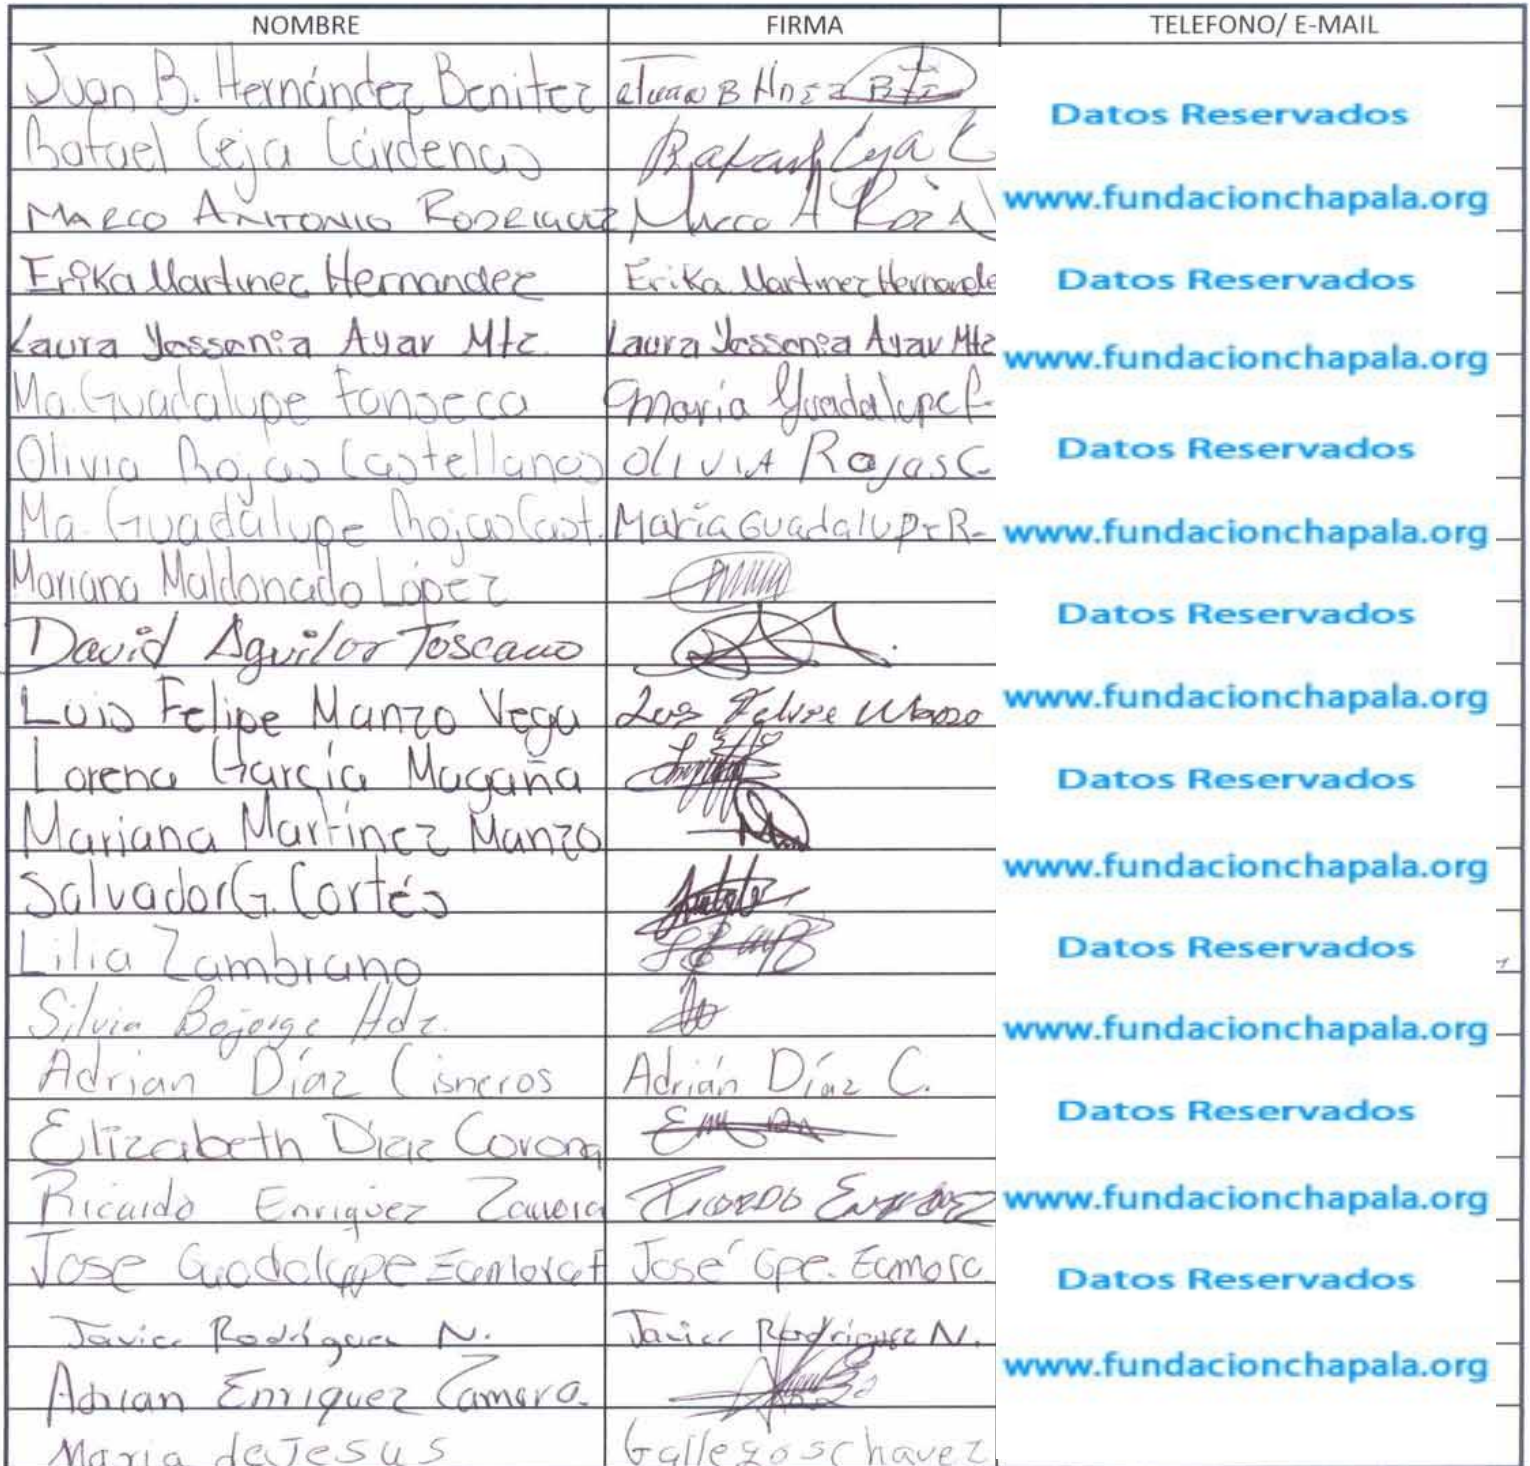 NOMBRE FIRMA TELEFONO/ E-MAIL
Juan B. Hernández Benitez Juan B Hnez Btz
Datos Reservados
Rafael Ceja Cárdenas Rafael Ceja C
www.fundacionchapala.org
MARCO ANTONIO RODRIGUEZ Marco A
Erika Martinez Hernandez Erika Martinez Hernande
Datos Reservados
Laura Yessenia Ayar Mtz. Laura Yessenia Ayar Mtz
www.fundacionchapala.org
Ma. Guadalupe Fonseca María Guadalupe f.
Olivia Rojas Castellanos OLIVIA Rojas C
Datos Reservados
Ma. Guadalupe Rojas Cast. María Guadalupe R.
www.fundacionchapala.org
Mariana Maldonado López
Datos Reservados
David Aguilar Toscano
Luis Felipe Manzo Vega Luis Felipe Manzo
www.fundacionchapala.org
Lorena García Magaña
Datos Reservados
Mariana Martínez Manzo
www.fundacionchapala.org
Salvador G. Cortés
Lilia Zambrano
Datos Reservados
Silvia Bojorge Hdz.
www.fundacionchapala.org
Adrian Díaz Cisneros Adrián Díaz C.
Elizabeth Diaz Corona
Datos Reservados
Ricardo Enriquez Zamora RICARDO ENRIQUEZ
www.fundacionchapala.org
Jose Guadalupe José Gpe.
Datos Reservados
Javier Rodríguez N. Javier Rodriguez N.
www.fundacionchapala.org
Adrian Enriquez Zamora.
Maria de Jesus Gallegos chavez